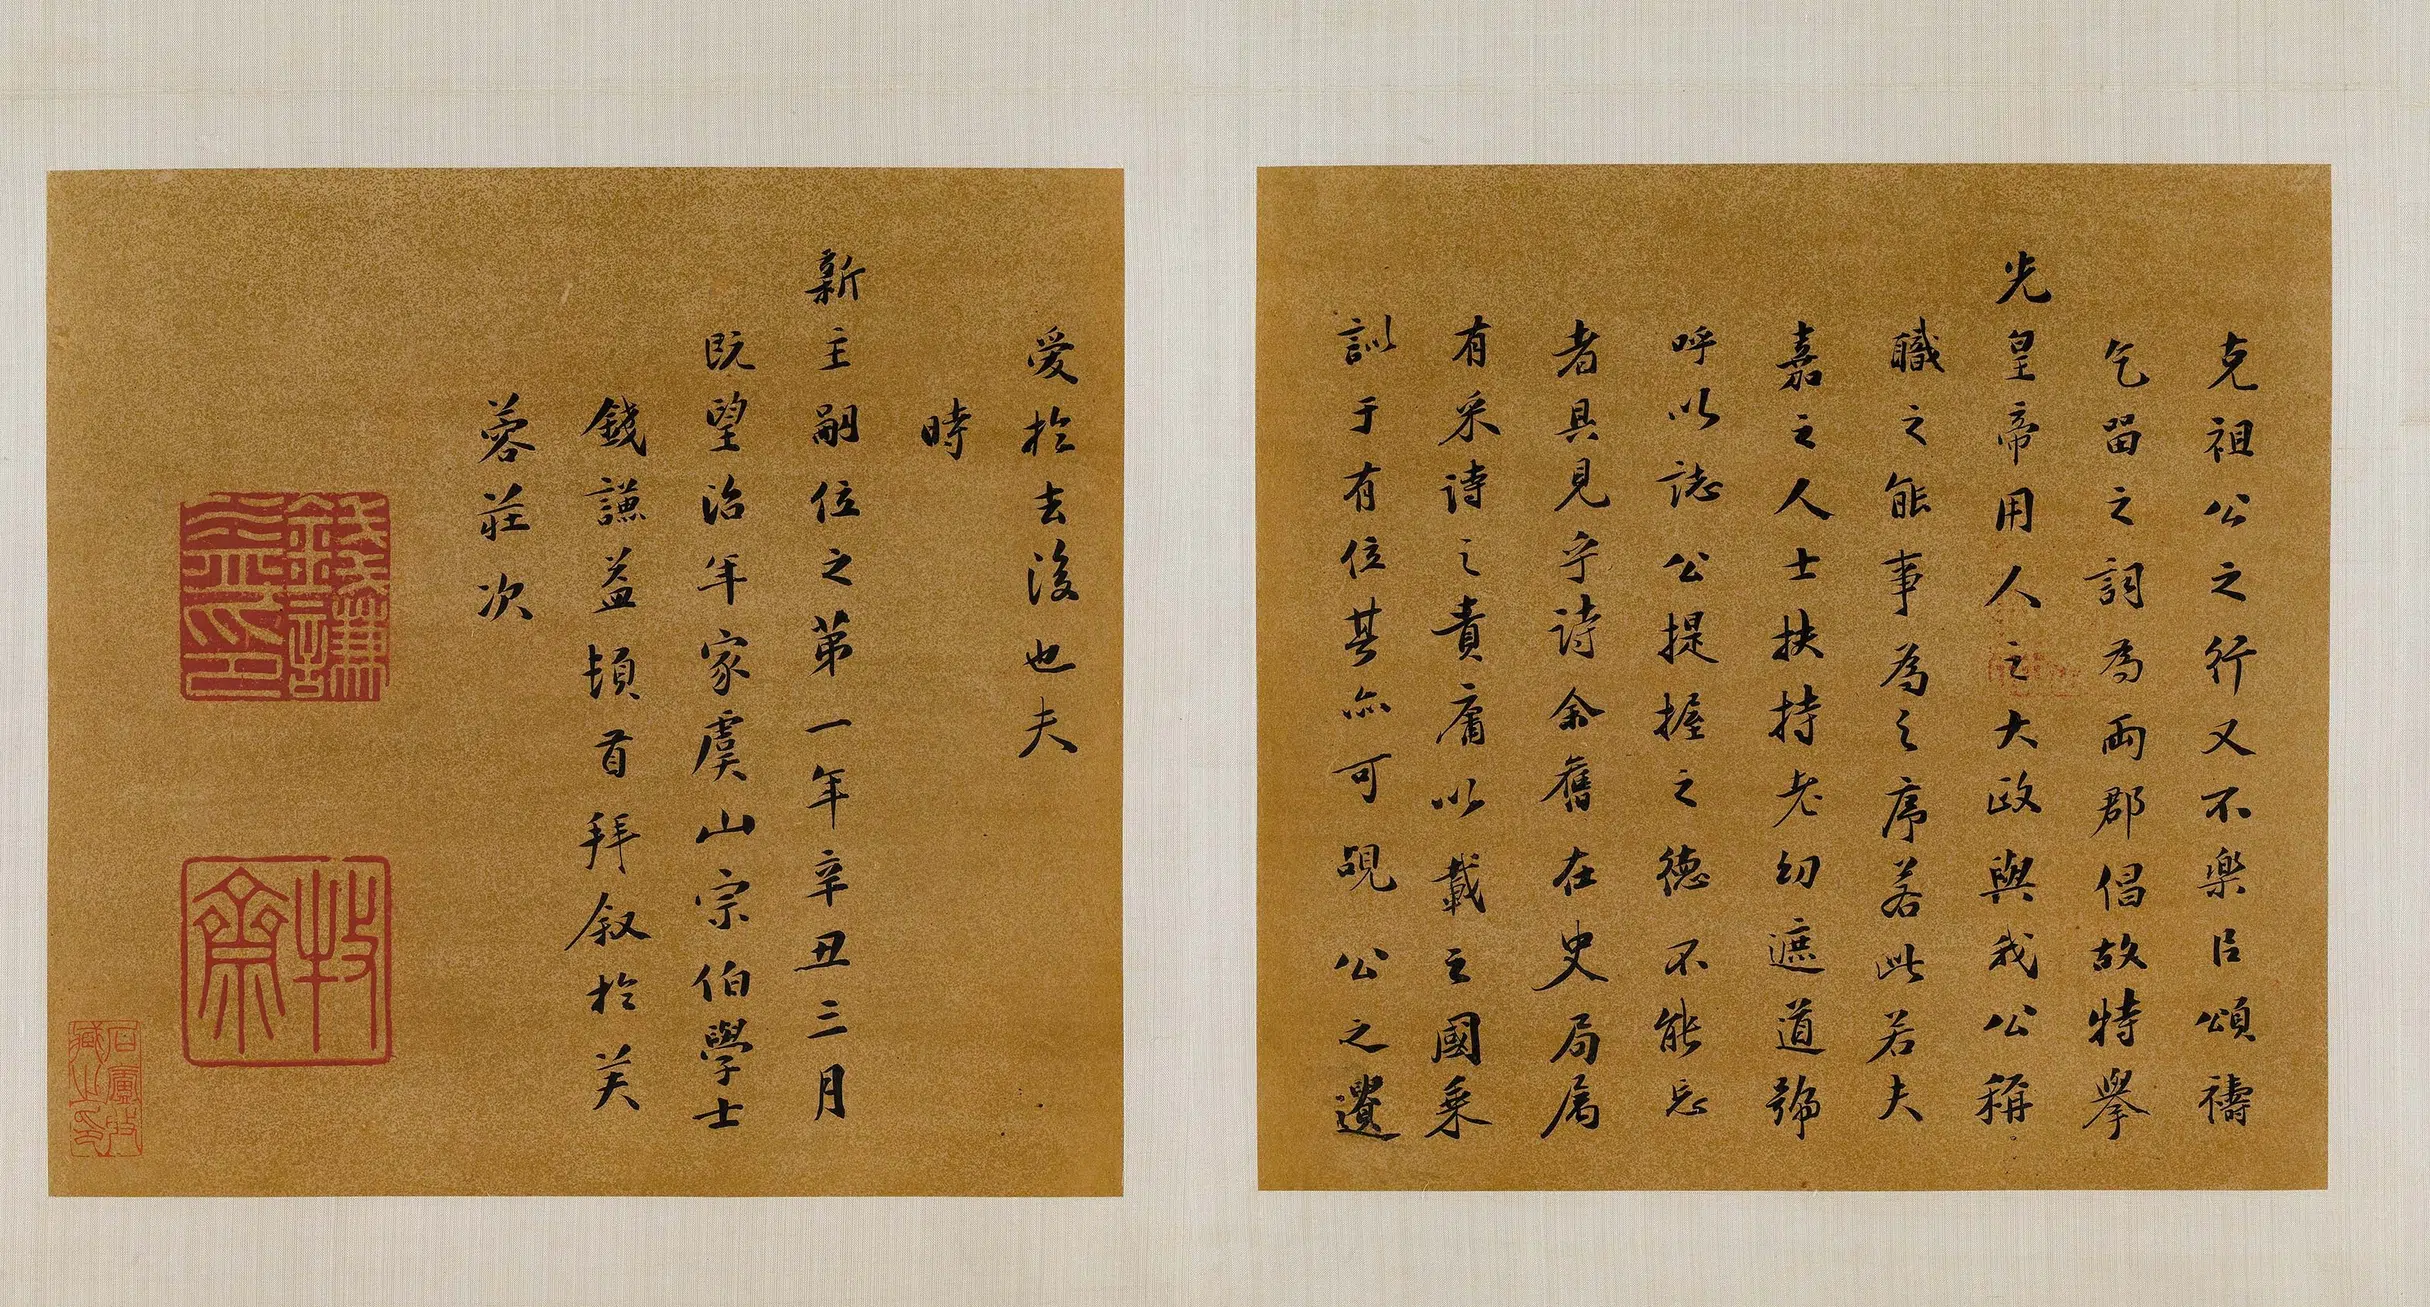 克祖公之行又不樂以頌禱
乞留之詞為兩郡倡故特舉
先皇帝用人之大政與我公稱
職之能事為之序若此若夫
嘉之人士扶持老幼遮道號
呼以誌公提握之德不能忘
者具見乎詩余舊在史局属
有采詩之責庸以載之國乘
訓于有位其亦可覘公之遺
愛於去後也夫
時
新主嗣位之第一年辛丑三月
既望治年家虞山宗伯學士
錢謙益頓首拜叙於芙
蓉莊次
錢謙益印
牧齋
藏之印